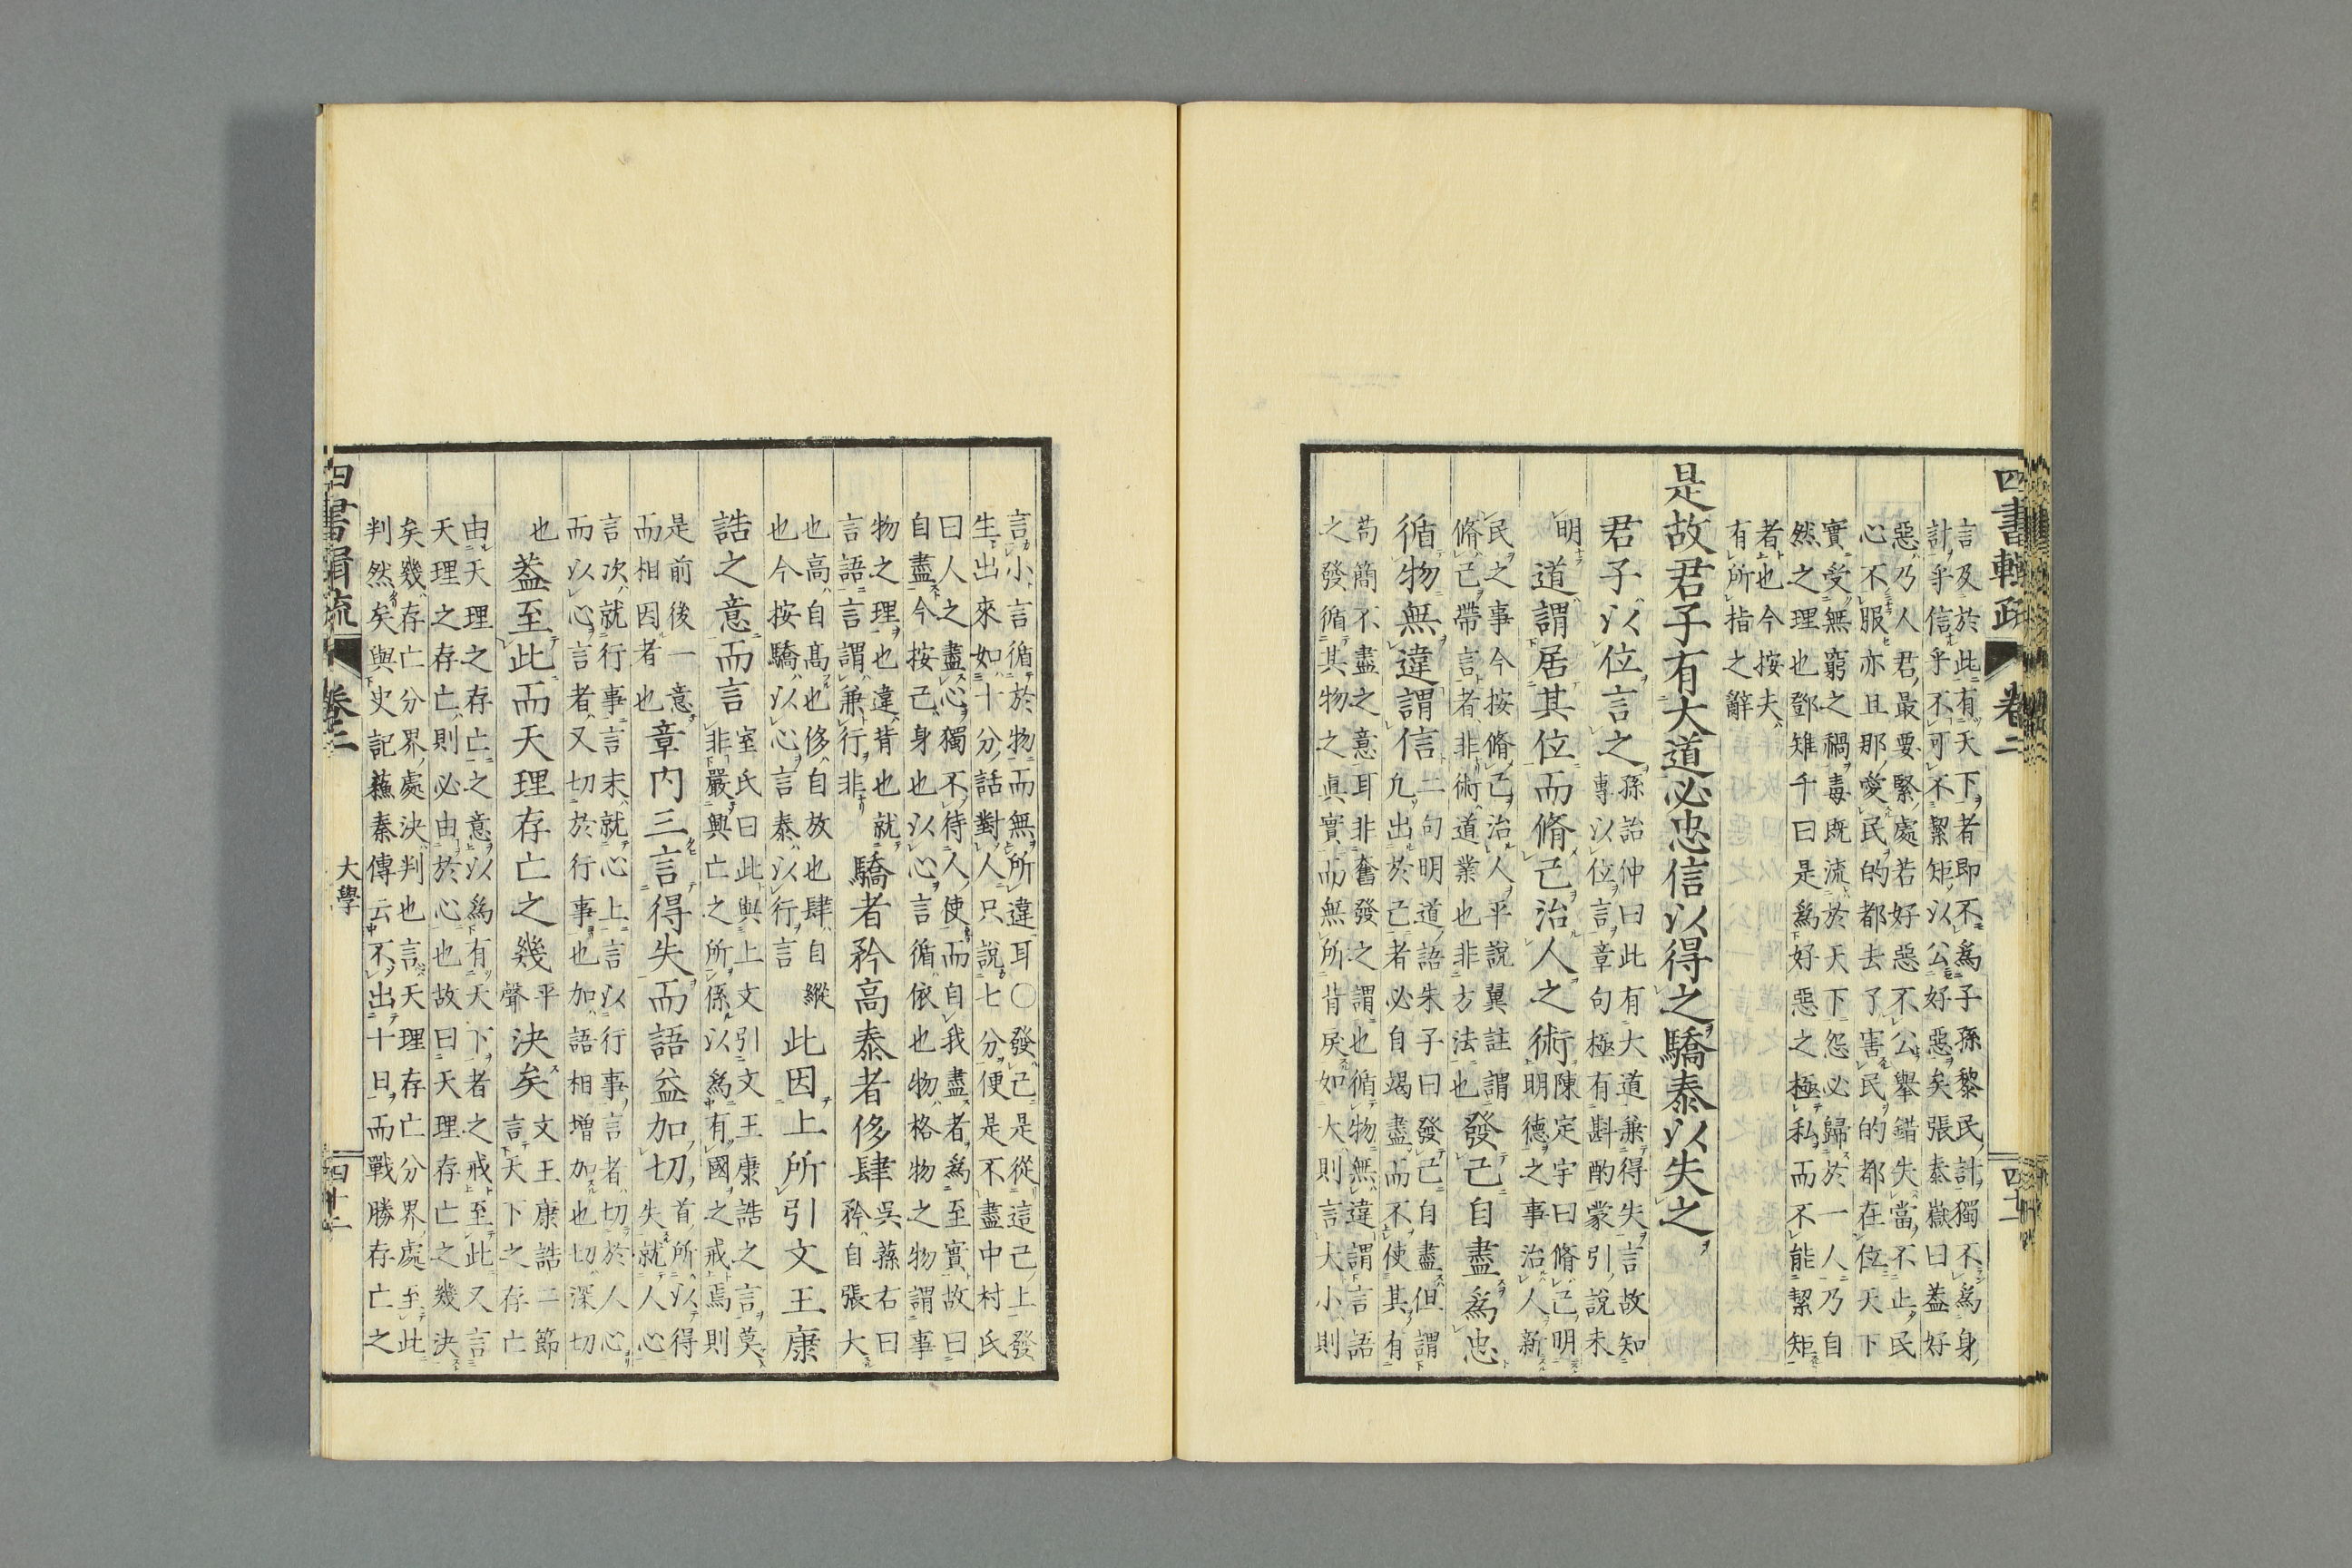 言及於此有天下者即不爲子孫黎民計獨不爲身
計乎信乎不可不絜矩以公好惡矣張泰嶽曰蓋好
惡乃人君最要緊處若好惡不公舉錯失當不止民
心不服亦且那愛民的都去了害民的都在位天下
實受無窮之禍毒既流於天下怨必歸於一人乃自
然之理也鄧雉千曰是爲好惡之極私而不能絜矩
者也今按夫
有所指之辭
是故君子有大道必忠信以得之驕泰以失之
君子以位言之
孫詒仲曰此有大道兼得失言故知
專以位言章句極有斟酌蒙引說未
明
道謂居其位而脩己治人之術
陳定宇曰脩己明
明德之事治人新
民之事今按脩己治人平說翼註謂
脩己帶言者非術道業也非方法也
發己自盡爲忠
循物無違謂信
二句明道語朱子曰發己自盡但謂
凡出於己者必自竭盡而不使其有
苟簡不盡之意耳非奮發之謂也循物無違謂言語
之發循其物之眞實而無所背戾如大則言大小則
四書輯疏
卷二
四十二
言小言循於物而無所違耳○發己是從這己上發
生出來如十分話對人只說七分便是不盡中村氏
曰人之盡心獨不待人使而自我盡者爲至實故曰
自盡今按己身也以心言循依也物格物之物謂事
物之理也違背也就
言語言謂兼行非
驕者矜高泰者侈肆
吳蓀右曰
矜自張大
也高自高也侈自放也肆自縱
也今按驕以心言泰以行言
此因上所引文王康
誥之意而言
室氏曰此與上文引文王康誥之言莫
非嚴興亡之所係以爲有國之戒焉則
是前後一意
而相因者也
章内三言得失而語益加切
首所以得
失就人心
言次就行事言末就心上言以行事言者切於人心
而以心言者又切於行事也加語相增加也切深切
也
蓋至此而天理存亡之幾
平
聲
決矣
文王康誥二節
言天下之存亡
由天理之存亡之意以爲有天下者之戒至此又言
天理之存亡則必由於心也故曰天理存亡之幾決
矣幾存亡分界處決判也言天理存亡分界處至此
判然矣與史記蘓秦傳云不出十日而戰勝存亡之
四書輯疏
卷二
大學
四十二